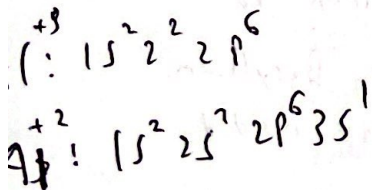 : 1s² 2² 2p⁶
+2 : 1s² 2s² 2p⁶ 3s¹